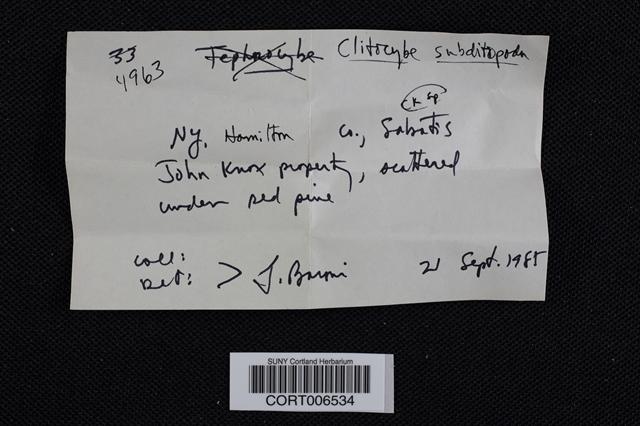 33 Tephrocybe Clitocybe subditopoda
4963
ck sp.
NY, Hamilton Co., Sabatis
John Knox property, scattered
under red pine
coll:
Det: > T. Baroni 21 Sept. 1985
SUNY Cortland Herbarium
CORT006534